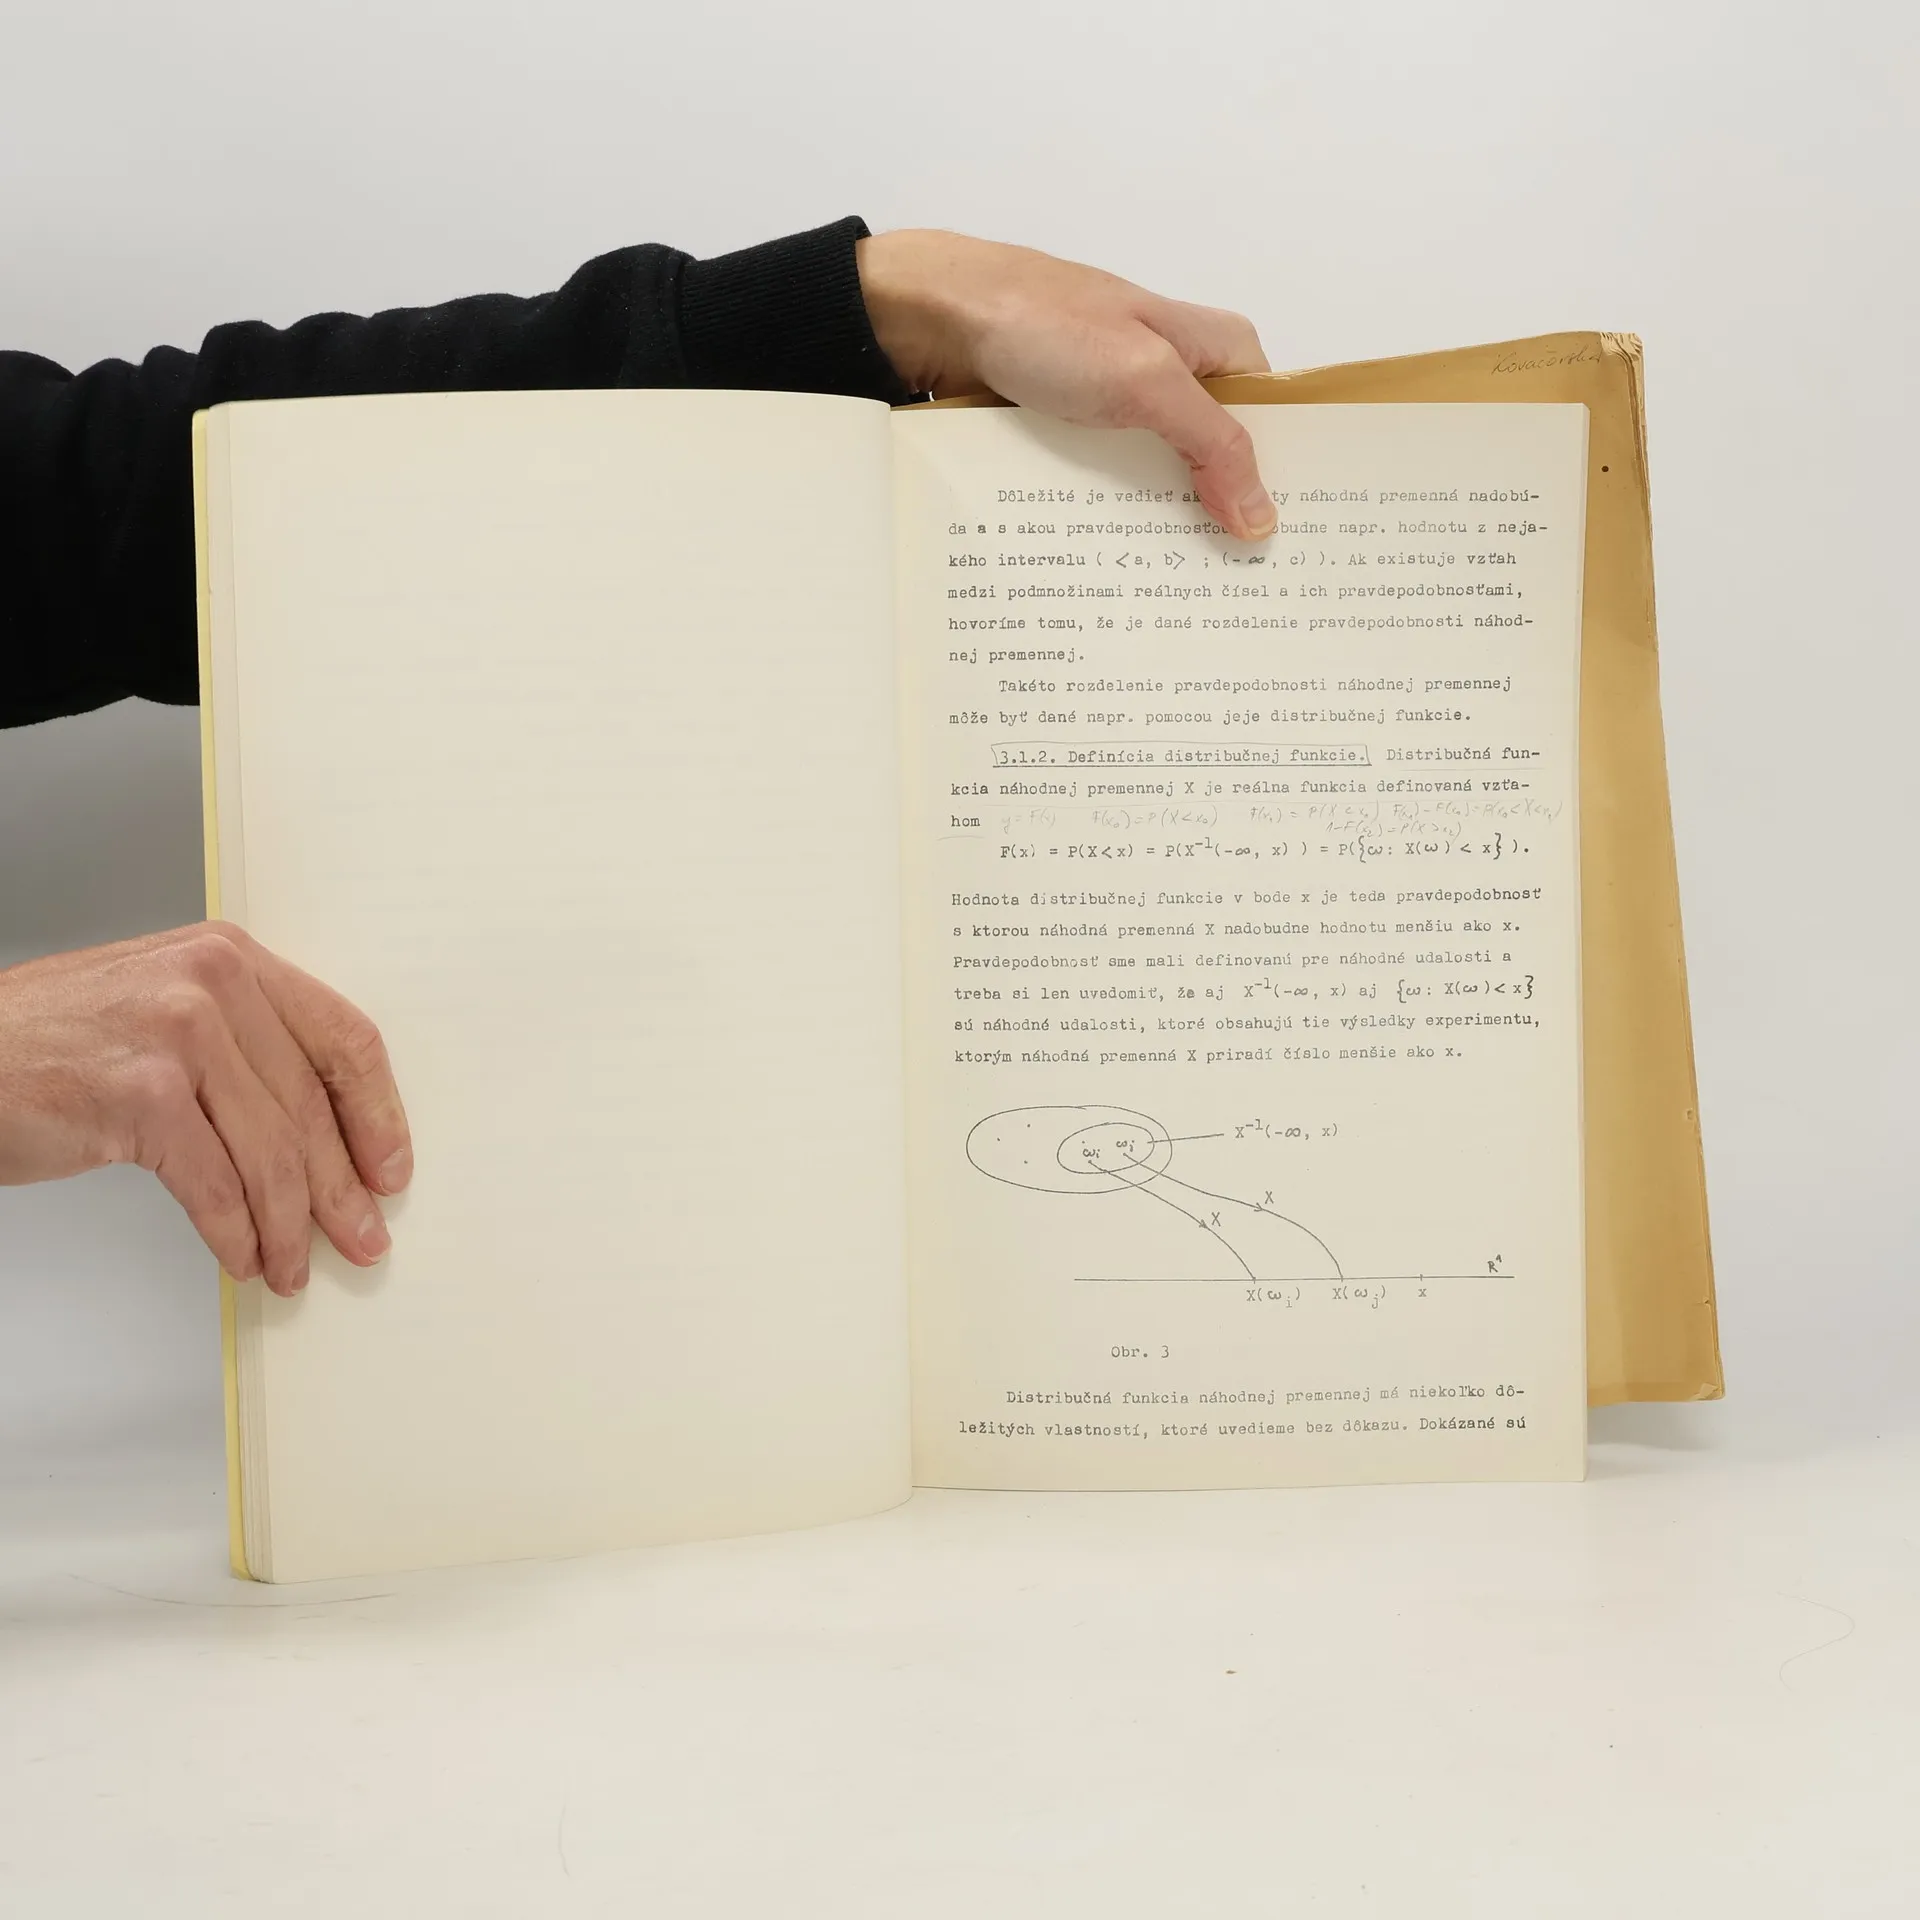 Kovačovská
Dôležité je vedieť ty náhodná premenná nadobú-
da a s akou pravdepodobnosťou nadobudne napr. hodnotu z neja-
kého intervalu ( <a, b> ; (-∞, c) ). Ak existuje vzťah
medzi podmnožinami reálnych čísel a ich pravdepodobnosťami,
hovoríme tomu, že je dané rozdelenie pravdepodobnosti náhod-
nej premennej.
Takéto rozdelenie pravdepodobnosti náhodnej premennej
môže byť dané napr. pomocou jeje distribučnej funkcie.
3.1.2. Definícia distribučnej funkcie. Distribučná fun-
kcia náhodnej premennej X je reálna funkcia definovaná vzťa-
hom y = F(x) F(x₀) = P(X < x₀)
F(x) = P(X < x) = P(X⁻¹(-∞, x) ) = P({ω: X(ω) < x} ).
Hodnota distribučnej funkcie v bode x je teda pravdepodobnosť
s ktorou náhodná premenná X nadobudne hodnotu menšiu ako x.
Pravdepodobnosť sme mali definovanú pre náhodné udalosti a
treba si len uvedomiť, že aj X⁻¹(-∞, x) aj {ω: X(ω) < x}
sú náhodné udalosti, ktoré obsahujú tie výsledky experimentu,
ktorým náhodná premenná X priradí číslo menšie ako x.
X⁻¹(-∞, x)
ωᵢ ωⱼ
X
X
R¹
X(ωᵢ) X(ωⱼ) x
Obr. 3
Distribučná funkcia náhodnej premennej má niekoľko dô-
ležitých vlastností, ktoré uvedieme bez dôkazu. Dokázané sú